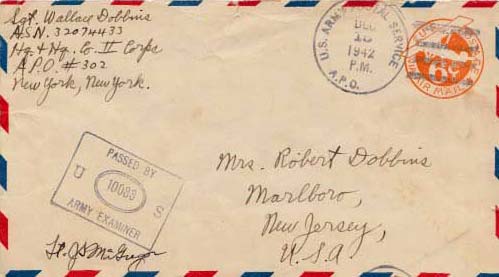 Sgt. Wallace Dobbins
A.S.N. 32074433
Hq. & Hq. Co. II Corps
A.P.O. # 302
New York, New York.
U.S. ARMY POSTAL SERVICE
DEC
1942
P.M.
A.P.O.
VIA AIR MAIL
PASSED BY
U 10089 S
ARMY EXAMINER
Mrs. Robert Dobbins
Marlboro,
New Jersey,
U.S.A